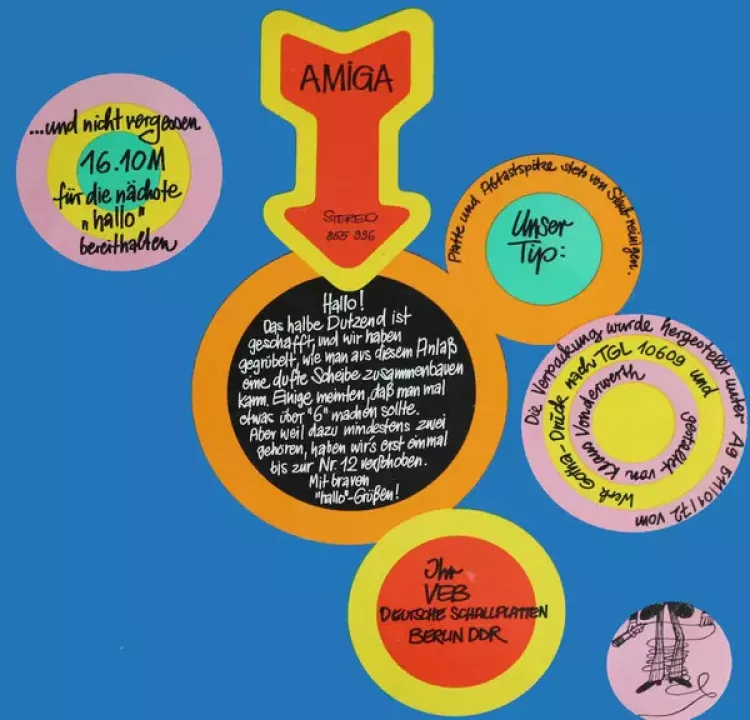 AMIGA
STEREO
855 996
...und nicht vergessen
16.10M
für die nächste
„hallo"
bereithalten
Platte und Abtastspitze stets von Staub reinigen.
Unser
Tip:
Hallo!
Das halbe Dutzend ist
geschafft, und wir haben
gegrübelt, wie man aus diesem Anlaß
eine dufte Scheibe zusammenbauen
kann. Einige meinten, daß man mal
etwas über "6" machen sollte.
Aber weil dazu mindestens zwei
gehören, haben wir's erst einmal
bis zur Nr. 12 verschoben.
Mit braven
"hallo"-Grüßen!
Die Verpackung wurde hergestellt unter Ag 511/01/72 vom
Werk Gotha-Druck nach TGL 10609 und
gestaltet von Klaus Vonderwerth
Ihr
VEB
DEUTSCHE SCHALLPLATTEN
BERLIN DDR